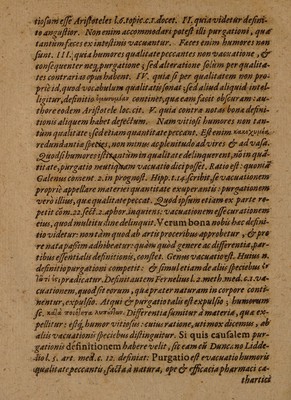 tiosum esse Aristoteles l.6. topic.c.1. docet. II. quia videtur defini-
to angustior. Non enim accommodari potest illi purgationi, qua
tantum fæces ex intestinis vacuantur. Fæces enim humores non
sunt. III. quia humores qualitate peccantes non vacuatione, &
consequenter neq; purgatione; sed alteratione solùm per qualita-
tes contrarias opus habent. IV. quia si per qualitatem non pro-
priè id, quod vocabulum qualitatis sonat, sed aliud aliquid intel-
ligitur, definitio continet, quæ eam facit obscuram: au-
thore eodem Aristotele loc. cit. V. quia contra naturam bonæ defini-
tionis aliquem habet defectum. Nam vitiosi humores non tan-
tùm qualitate, sed etiam quantitate peccant. Est enim
redundantis species, non minùs ac plenitudo ad vires & ad vasa.
Quod si humores istì tantùm in qualitate delinquerent, nō in quā-
titate, purgatio neutiquam vacuatio dici posset. Ratio est: quoniā
Galenus coment. 2. in prognost. Hipp. t.14. scribit, se vacuationem
propriè appellare materiei quantitate exuperantis: purgationem
verò illius, quæ qualitate peccat. Quod ipsum etiam ex parte re-
petit cōm. 22. sect. 2. aphor. inquiens: vacuationem esse evacuationem
eius, quod multitudine delinquit. Verum bona nobis hæc defini-
tio videtur: non tam quod ab artis proceribus approbetur, & pro
re nata passim adhibeatur: quàm quòd genere ac differentia, par-
tibus essentialis definitionis, constet. Genus vacuatio est. Huius n.
definitio purgationi competit: & simul etiam de aliis speciebus
prædicatur. Definit autem Fernelius l. 2. meth. med. c. 2. va-
cuationem, quod sit eorum, quæ præter naturam in corpore conti-
nentur, expulsio. Atqui & purgatio talis est expulsio; humorum
sc. Differentia sumitur à materia, quæ ex-
pellitur: estq́; humor vitiosus: cuius ratione, uti mox dicemus, ab
aliis vacuationis speciebus distinguitur. Si quis causalem pur-
gationis definitionem habere velit, sic eam ex Duncano Lidde-
lio l. 5. art. med. c. 12. definiat: Purgatio est evacuatio humoris
qualitate peccantis, facta à natura, ope & efficacia pharmaci ca-
thartici